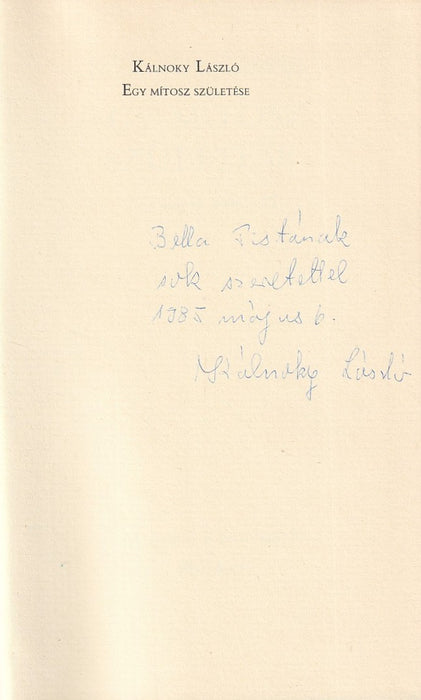 Kálnoky László
Egy mítosz születése
Bella Pistának
sok szeretettel
1985 május 6.
Kálnoky László